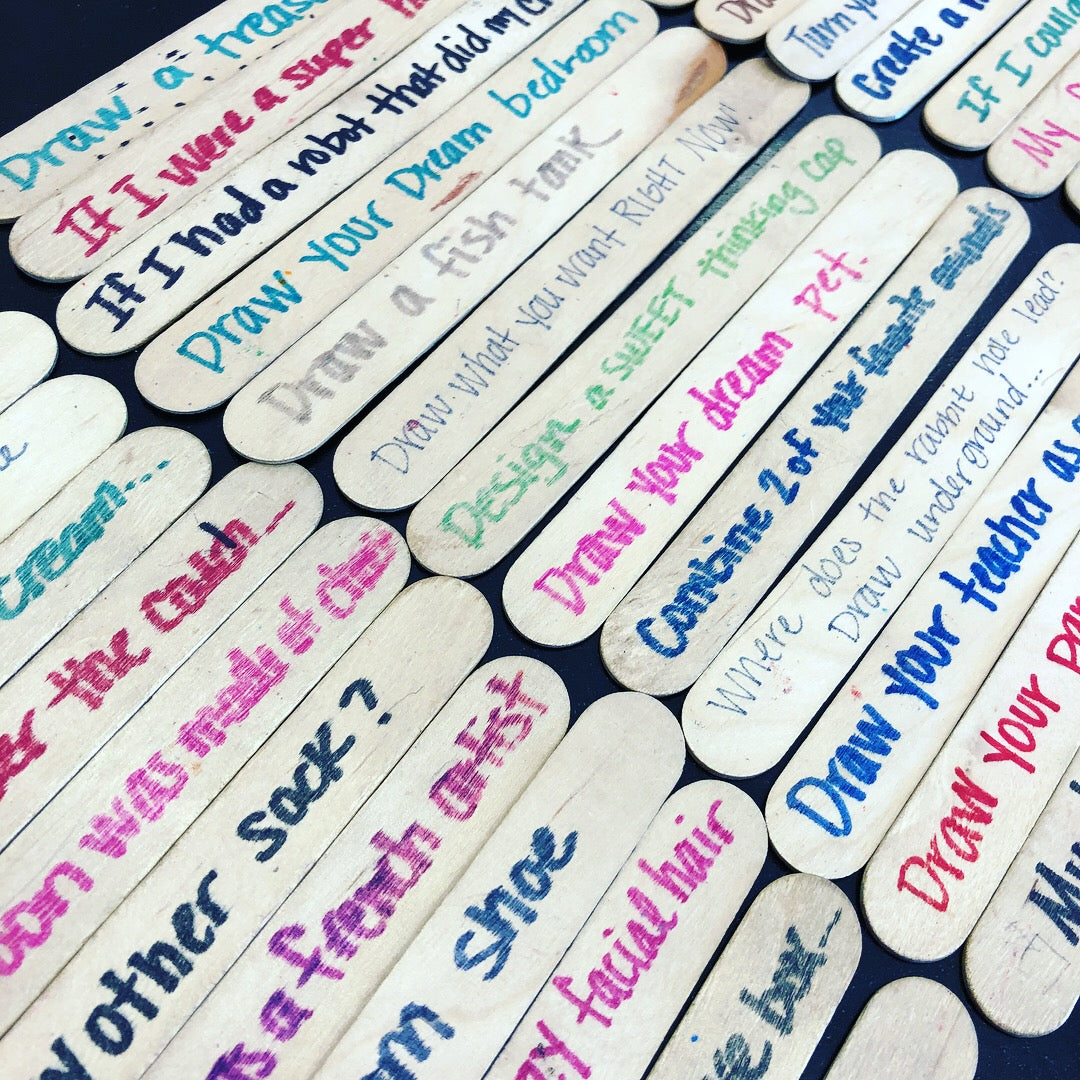 Draw a treas
If I were a super
If I had a robot that did my c
Draw your Dream bedroom
Draw a fish tank
Draw what you want RIGHT NOW!
Design a SWEET thinking cap
Draw your dream pet.
Combine 2 of your favorite animals
Where does the rabbit hole lead?
Draw underground...
Draw your teacher as a
Draw your par
My
Dra
Turn yo
Create a
If I coul
My
cream...
the couch...
oon was made of
other sock?
as a french artist
shoe
facial hair
box...